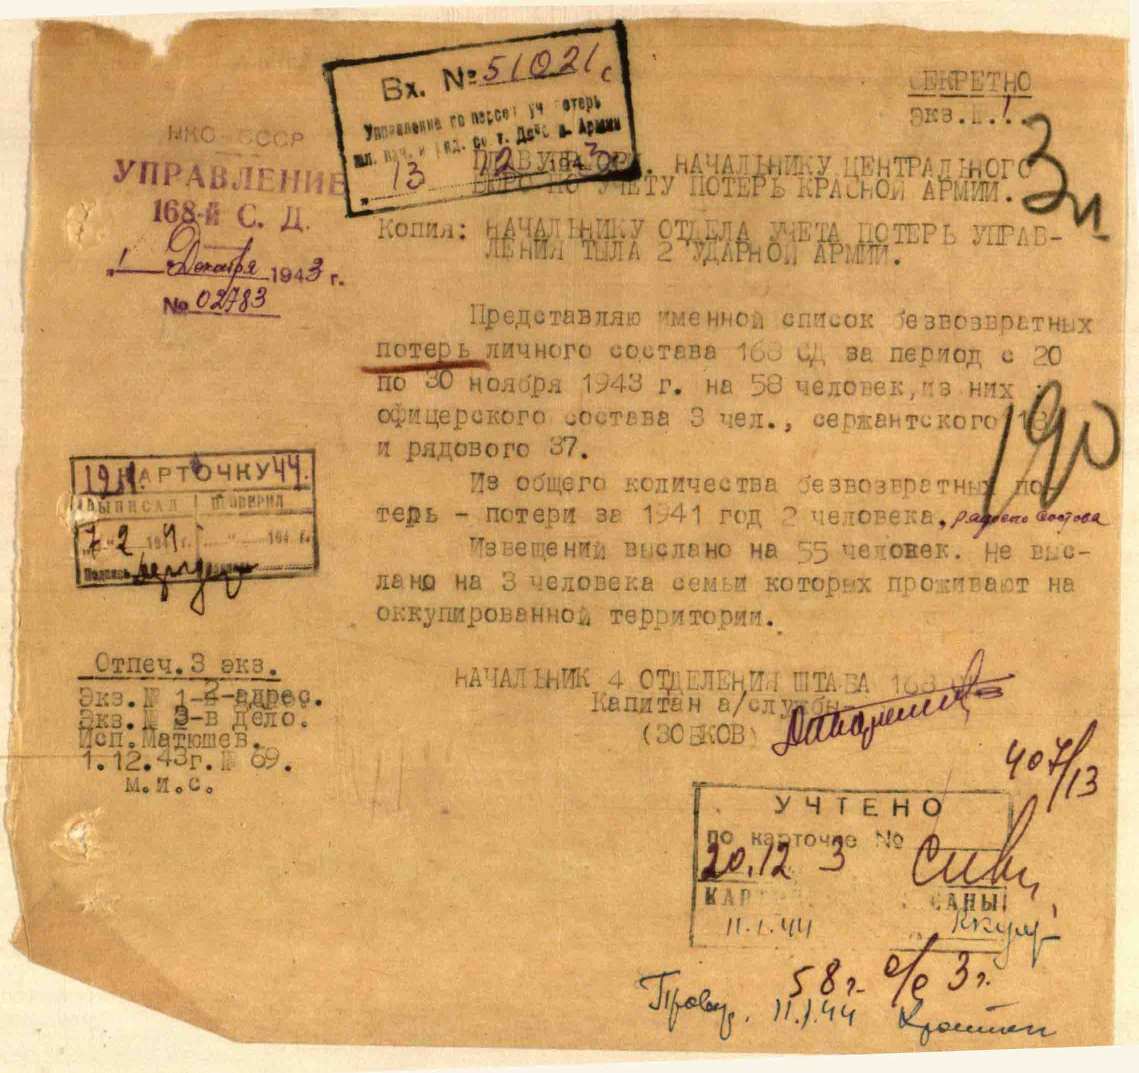 Вх. № 51021с
Управление по персон. уч. потерь
и ряд. Армии
13 12 1943
СЕКРЕТНО
экз.№.1
НКО-СССР
УПРАВЛЕНИЕ
168-й С. Д.
"1" Декабря 1943 г.
№ 02783
НАЧАЛЬНИКУ ЦЕНТРАЛЬНОГО
БЮРО ПО УЧЕТУ ПОТЕРЬ КРАСНОЙ АРМИИ.
3л
Копия: НАЧАЛЬНИКУ ОТДЕЛА УЧЕТА ПОТЕРЬ УПРАВ-
ЛЕНИЯ ТЫЛА 2 УДАРНОЙ АРМИИ.
Представляю именной список безвозвратных
потерь личного состава 168 СД за период с 20
по 30 ноября 1943 г. на 58 человек,из них :
офицерского состава 3 чел., сержантского 18
и рядового 37.
190
Из общего количества безвозвратных по-
терь - потери за 1941 год 2 человека. рядового состава
Извещений выслано на 55 человек. Не выс-
лано на 3 человека семьи которых проживают на
оккупированной территории.
КАРТОЧКУ 44.
ВЫПИСАЛ ПРОВЕРИЛ
194 г.
Подпись
НАЧАЛЬНИК 4 ОТДЕЛЕНИЯ ШТАБА 168
Капитан а/службы-
(ЗОБКОВ)
Отпеч.3 экз.
Экз.№ 1-2-адрес.
Экз.№ 3-в дело.
Исп.Матюшев.
1.12.43г.№ 69.
м.и.с.
407/13
УЧТЕНО
по карточке №
20.12 3
11.1.44
58г. о/с 3г.
Провер. 11.1.44